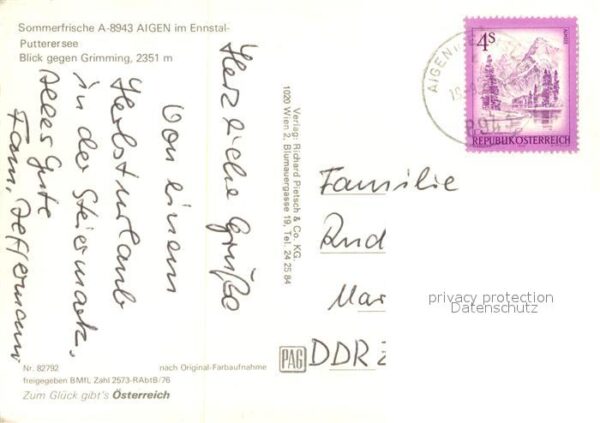 Sommerfrische A-8943 AIGEN im Ennstal-
Putterersee
Blick gegen Grimming, 2351 m
Herzliche Grüße
Von einem
Herbsturlaub
in der Steiermark.
Alles Gute
Fam.
Nr. 82792
nach Original-Farbaufnahme
freigegeben BMfL Zahl 2573-RAbtB/76
Zum Glück gibt's Österreich
Verlag: Richard Pietsch & Co. KG.
1020 Wien 2, Blumauergasse 19, Tel. 24 25 84
PAG
AIGEN
8943
4S
REPUBLIK ÖSTERREICH
Familie
Rud
Mar
DDR
privacy protection
Datenschutz